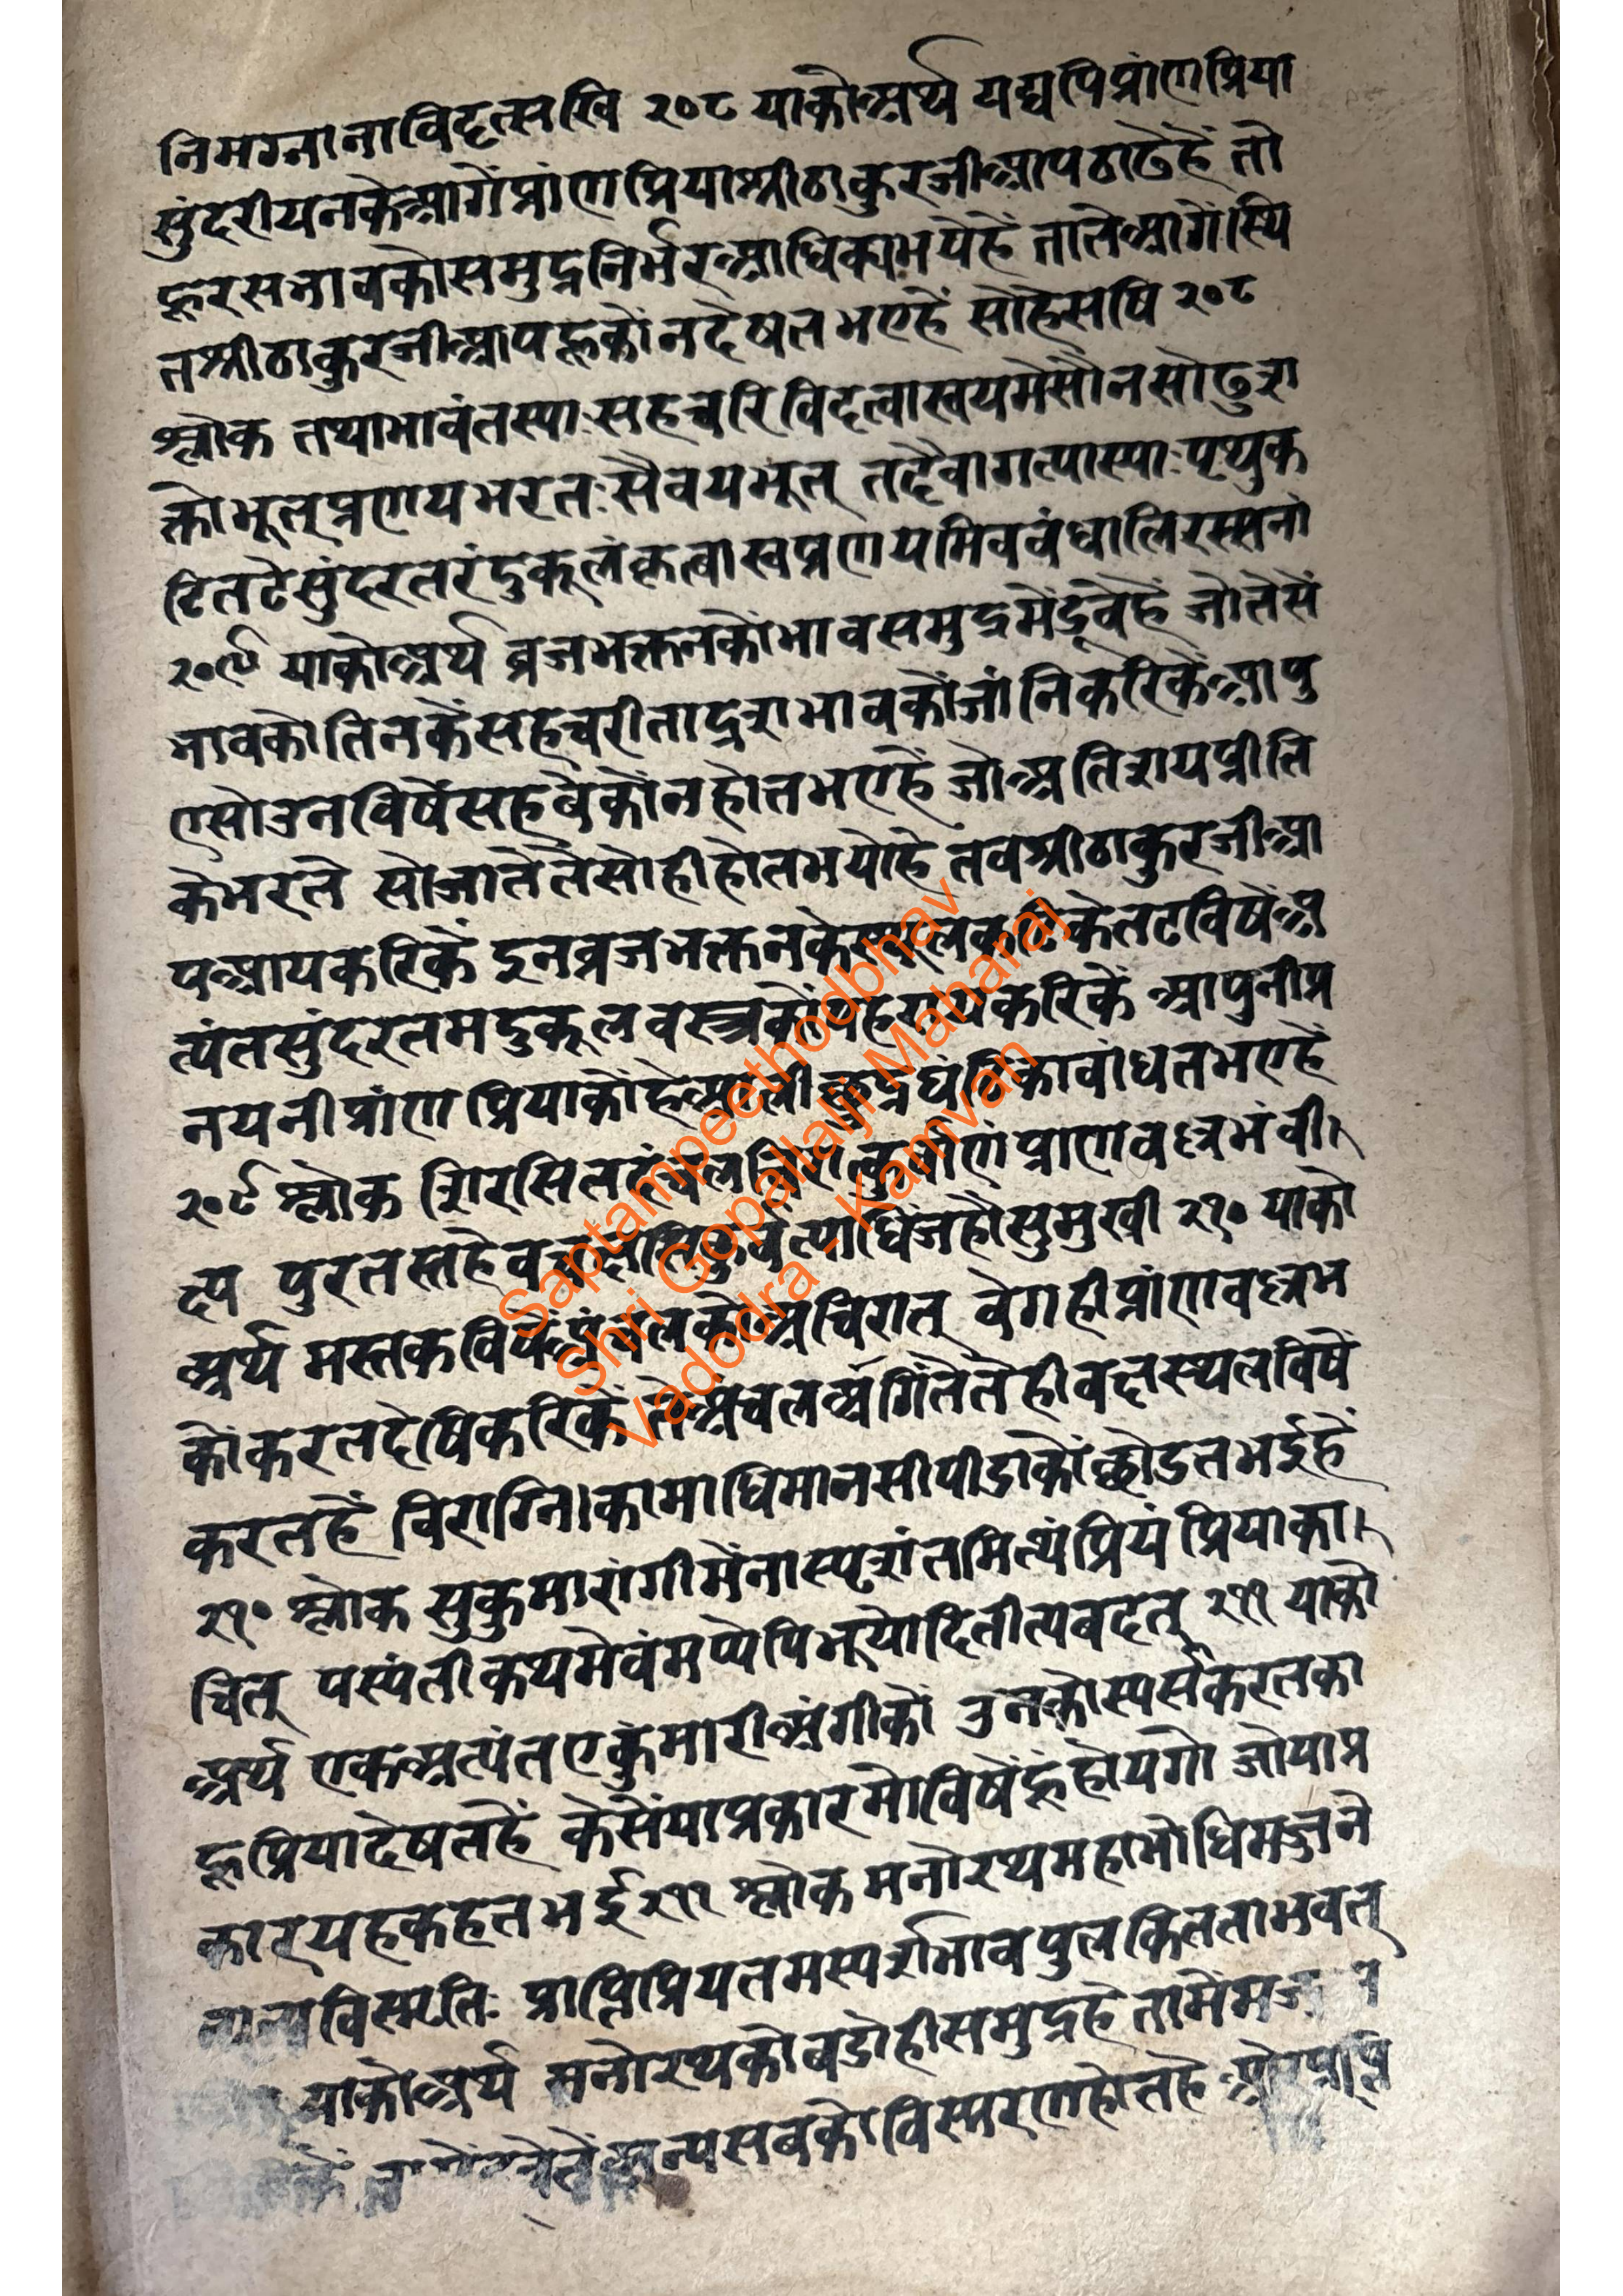 निमग्नानाविदत्सखि २०८ याकोअर्थ यद्यपिप्रांणप्रिया
सुंदरीयनकेआगेंप्रांणप्रियाश्रीठाकुरजीआपठाढेहैं तो
हूरसभावकोसमुद्रनिर्भरआधिकाभयेहैं तातेआगेंस्थि
तश्रीठाकुरजीआपहूकोंनदेषतभएहैं सोहेसषि २०८
श्लोक तथाभावंतस्याःसहचरिविदत्वास्वयमसौनसोढुशा
क्तोभूत्प्रणयभरतःसैवयभूत् तदैवागत्यास्याःपृथुक
टितटेसुंदरतरंदुकूलंकृत्वास्वप्रणयमिवबंधातिरसनां
२०९ याकोअर्थ व्रजभक्तनकोंभावसमुद्रमेंडूबेहैं जोतेसें
भावकोतिनकेंसहचरीताद्रशभावकोंजांनिकरिकेंआपु
एसोउनविषेंसहबेकोंनहोतभएहैं जोअतिशयप्रीति
केभरते सोजातेंतैसोहीहोतभयोहै तबश्रीठाकुरजीआ
पआयकरिकें इनव्रजभक्तनकेस्थूलकटिकेतटविषेंअ
त्यंतसुंदरतमदुकूलवस्त्रकोंपहरायकरिकें आपुनीप्र
नयनीप्रांणप्रियाकोंहेआलीक्षुद्रघंटिकाबांधतभएहैं
२०९ श्लोक शिरसि प्राणवल्लभंवी।
क्ष्य पुरतस्तदैव सुमुखी २१० याको
अर्थ मस्तकविषें अचिरात् वेगहीप्रांणवल्लभ
कोंकरतदेषिकरिकें तैतेहीवक्षस्थलविषें
करतहैं विराग्नि।कामाधिमानसीपीडाकोंछोडतभईहैं
२१० श्लोक सुकुमारांगीमेनांस्पृशंतमित्थंप्रियंप्रियाका।
चित् पस्यंतीकथमेवंमप्येपिभूयादितीत्यबदत् २११ याको
अर्थ एकअत्यंतएकुंमारीअंगीकों उनकोस्पर्सकरतका
हूप्रियादेषतहैं केसेंयाप्रकारमोविषेंहूंहोयगो जोयाप्र
कारयहकहतभई २११ श्लोक मनोरथमहांभोधिमज्जने
विस्मृतिः प्राप्तिप्रियतमस्पर्शाभावपुलकिततांभवत्
याकोअर्थ मनोरथकोबडोहीसमुद्रहै तामेंमज
अन्यसबकोविस्मरणहोतहै